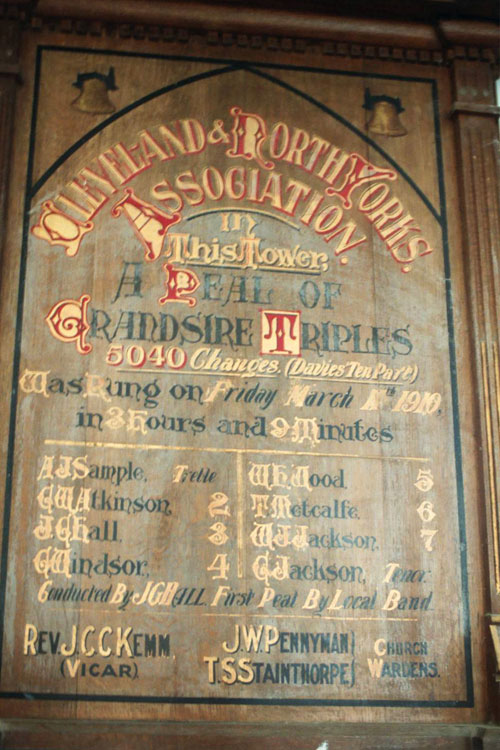 CLEVELAND & NORTH YORKS.
ASSOCIATION.
in
This Tower,
A PEAL OF
GRANDSIRE TRIPLES
5040 Changes. (Davies Ten Part)
Was Rung on Friday March 1910,
in 3 Hours and 9 Minutes
A J Sample, Treble
G W Atkinson, 2
J G Hall, 3
G Windsor, 4
W H Wood, 5
T Metcalfe, 6
W J Jackson, 7
G Jackson, Tenor.
Conducted By J G HALL. First Peal By Local Band.
REV. J.C.C KEMM,
(VICAR)
J.W. PENNYMAN)
T.S STAINTHORPE)
CHURCH
WARDENS.